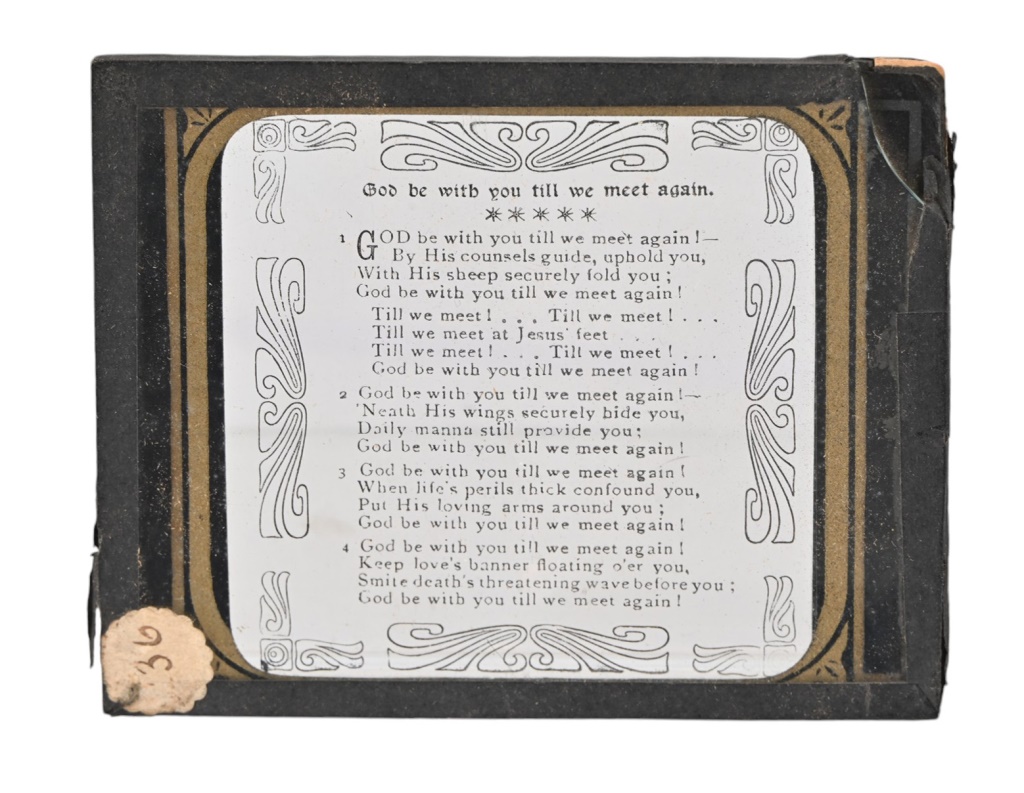 God be with you till we meet again.
*****
1 GOD be with you till we meet again!—
By His counsels guide, uphold you,
With His sheep securely fold you;
God be with you till we meet again!
Till we meet! . . . Till we meet! . . .
Till we meet at Jesus' feet . . .
Till we meet! . . . Till we meet! . . .
God be with you till we meet again!
2 God be with you till we meet again!—
'Neath His wings securely hide you,
Daily manna still provide you;
God be with you till we meet again!
3 God be with you till we meet again!
When life's perils thick confound you,
Put His loving arms around you;
God be with you till we meet again!
4 God be with you till we meet again!
Keep love's banner floating o'er you,
Smite death's threatening wave before you;
God be with you till we meet again!
36